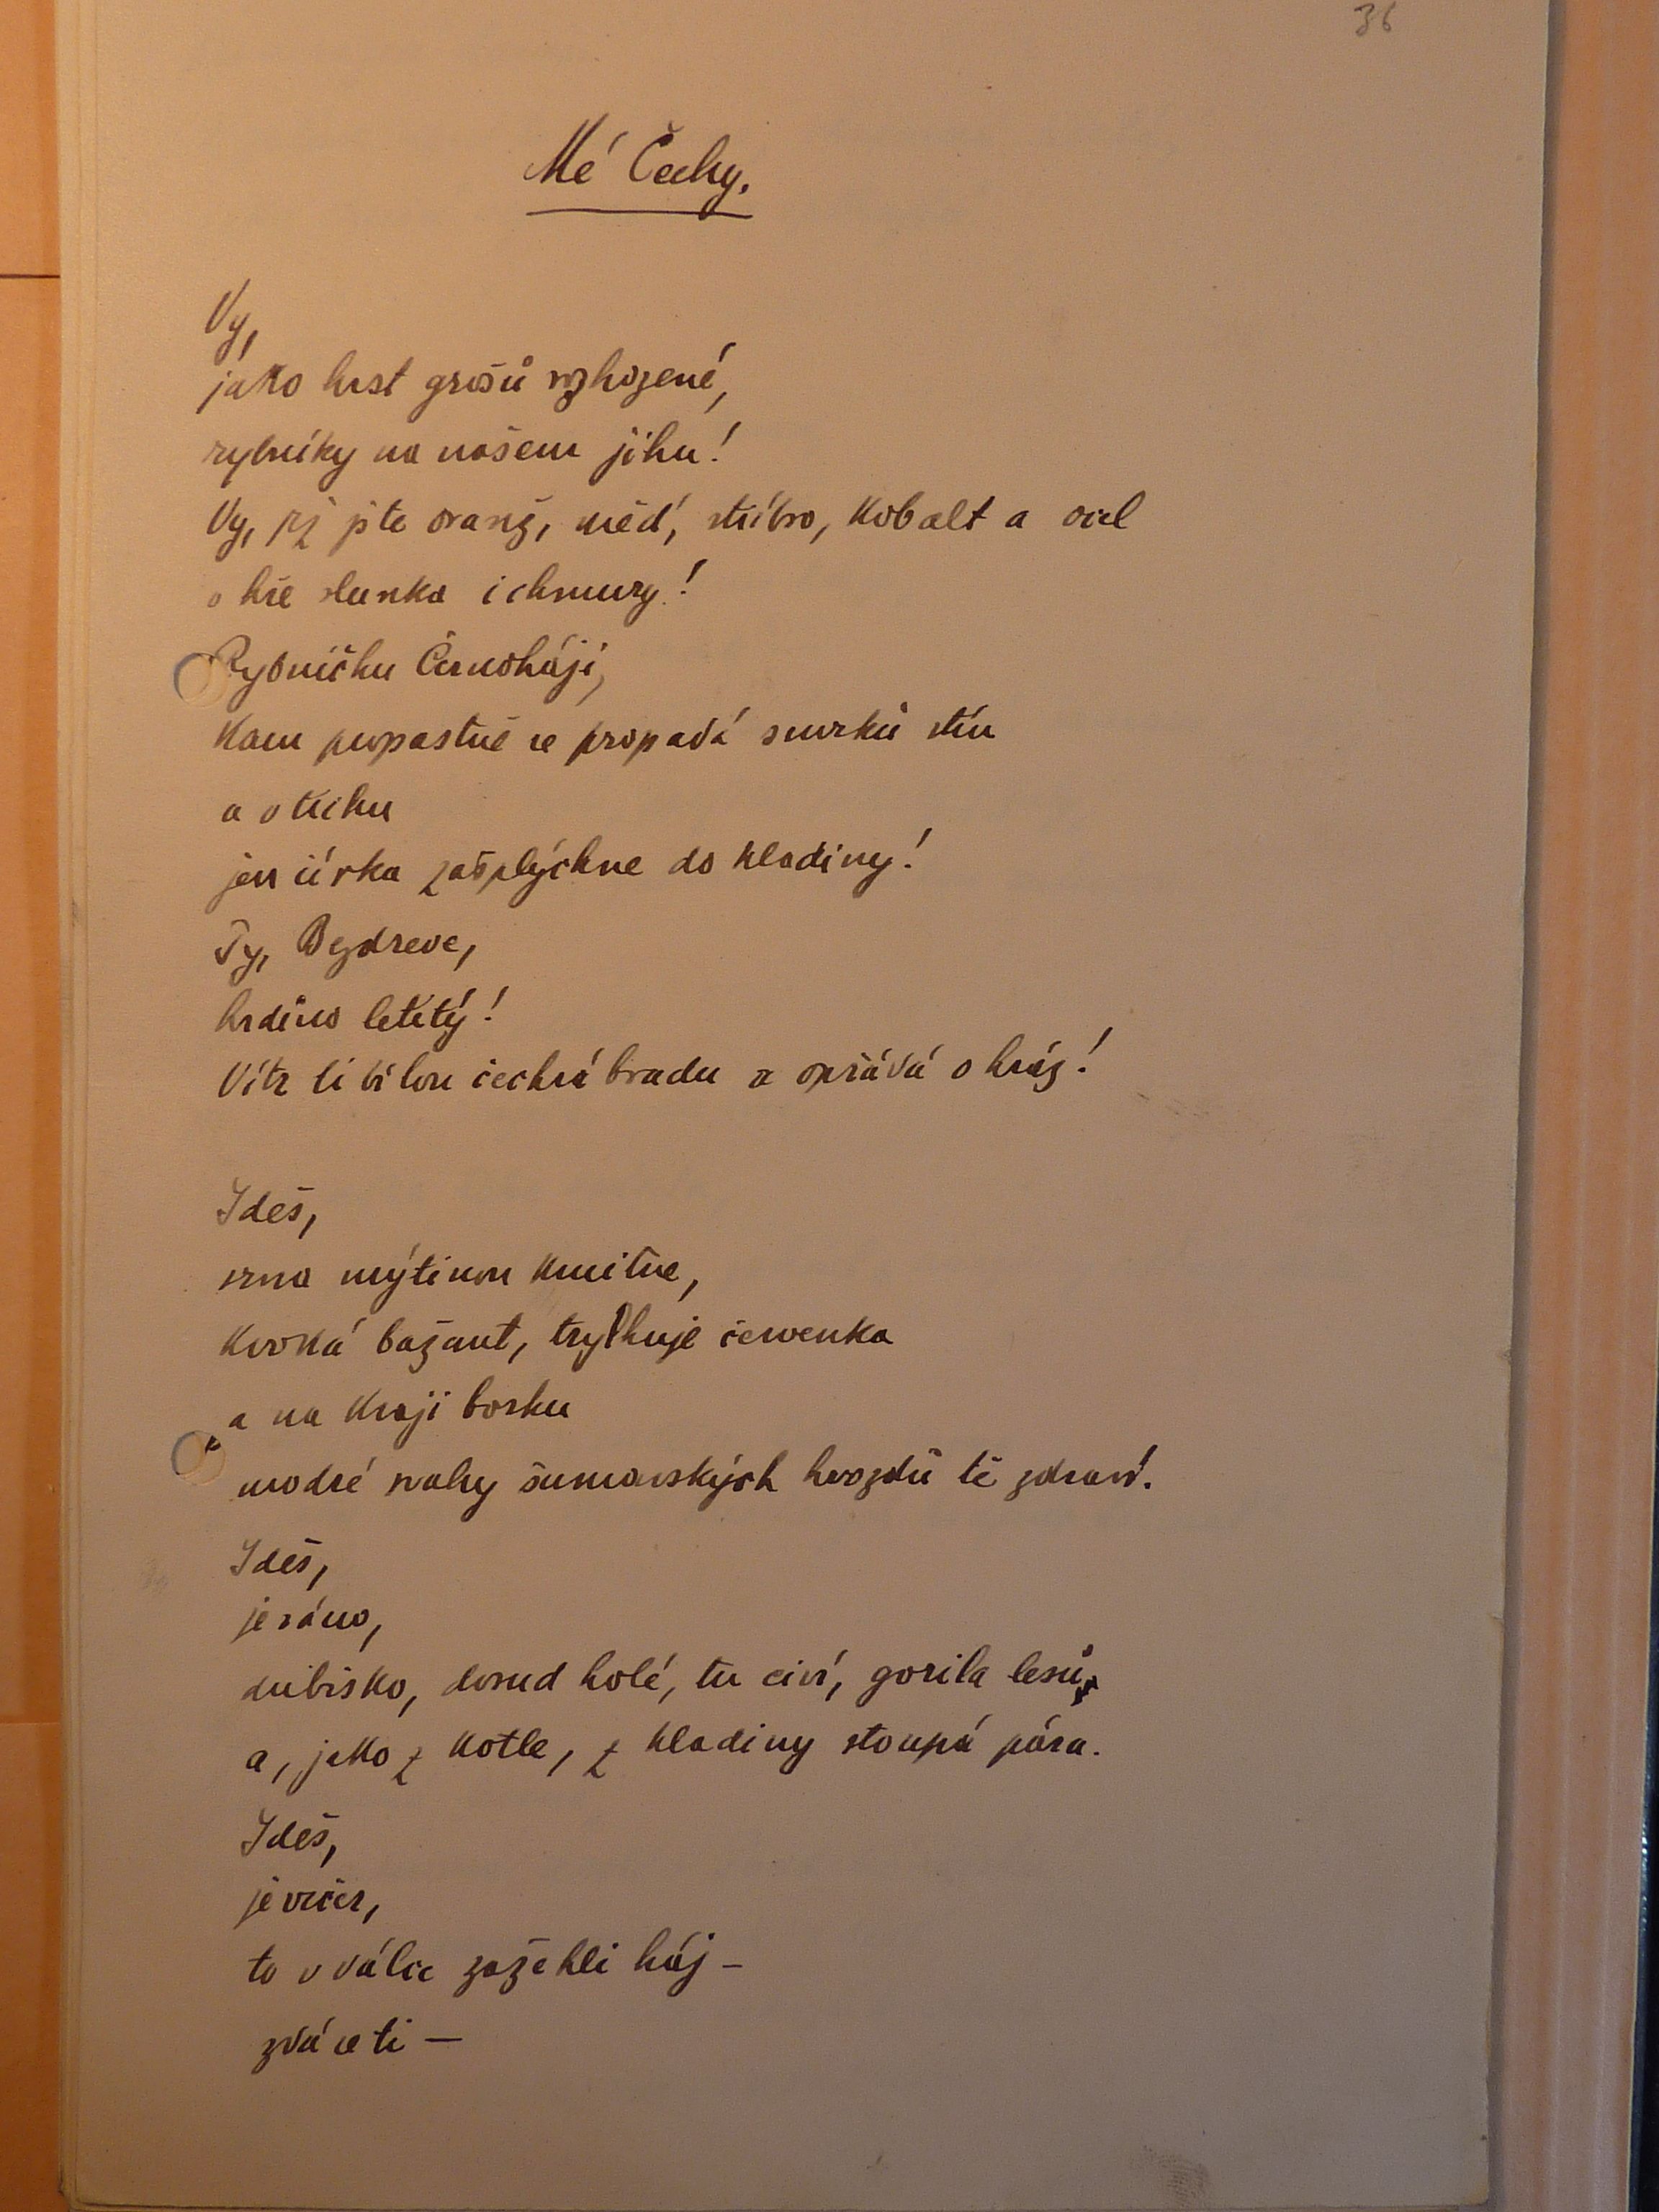 36
Mé Čechy.
Vy,
jako hrst grošů rozhozené,
rybníky na našem jihu!
Vy, jž jste oranž, měď, stříbro, kobalt a ocel
v hře slunka i chmury!
Rybníčku Černoháji,
kam propastně se propadá smrků stín
a v tichu
jen čírka zašplýchne do hladiny!
Ty, Bezdreve,
hrdino letitý!
Vítr ti bílou čechrá bradu a opřává o hráz!
Jdeš,
srna mýtinou kmitne,
kvoká bažant, trylkuje červenka
a na kraji borku
modré svahy šumavských hvozdů tě zdraví.
Jdeš,
je ráno,
dubisko, dosud holé, tu civí, gorila lesů,
a, jako z kotle, z hladiny stoupá pára.
Jdeš,
je večer,
to v válce zažehli háj –
zdá se ti –